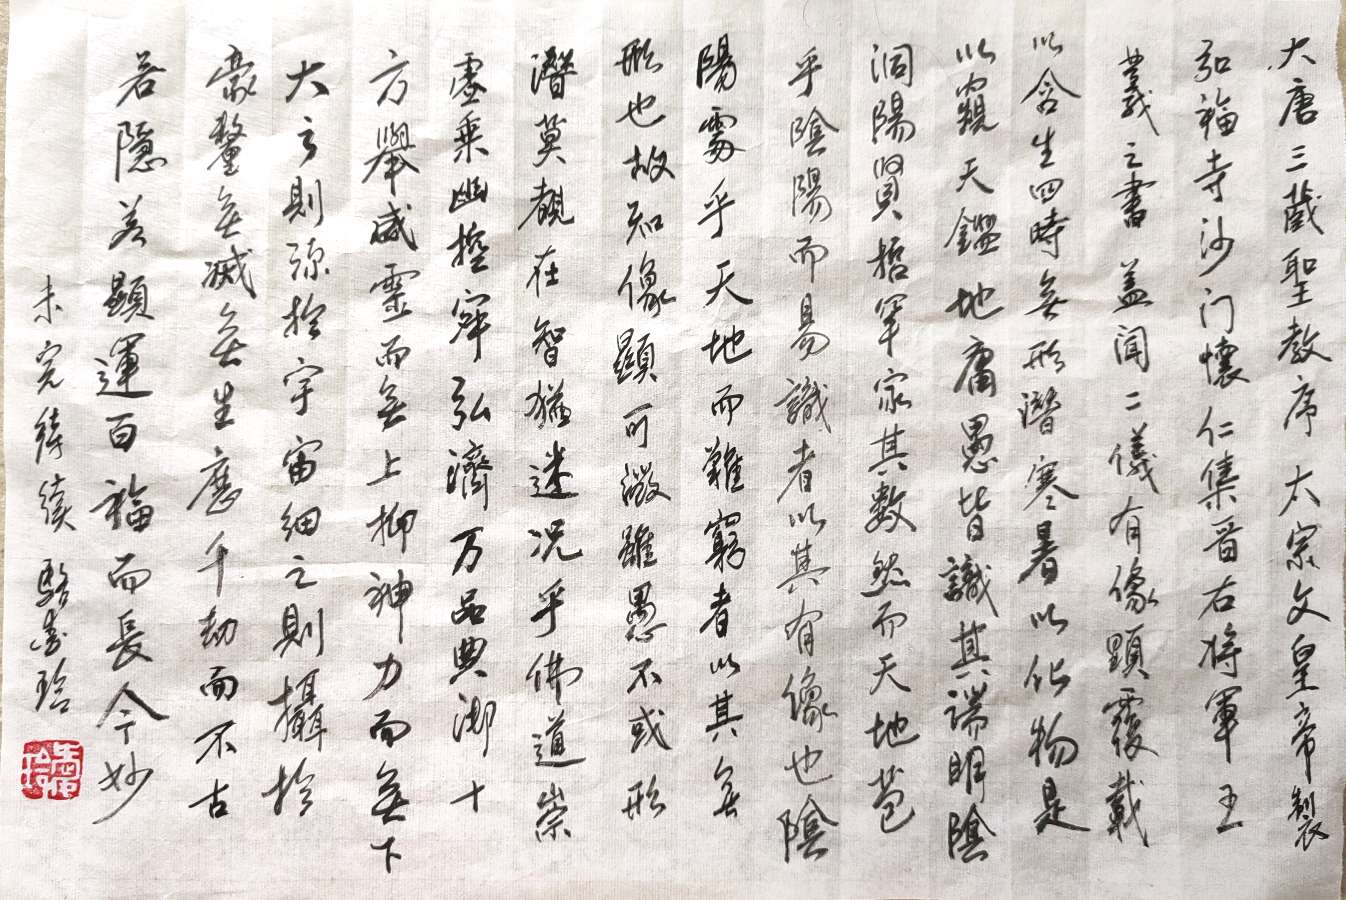 大唐三藏聖教序 太宗文皇帝製
弘福寺沙门懷仁集晉右将軍王
羲之書 盖聞二儀有像顯覆載
以含生四時無形潛寒暑以化物是
以窺天鑑地庸愚皆識其端明陰
洞陽賢哲罕窮其數然而天地苞
乎陰陽而易識者以其有像也陰
陽處乎天地而難窮者以其無
形也故知像顯可徵雖愚不或形
潛莫覩在智猶迷况乎佛道崇
虛乘幽控寂弘濟万品典御十
方舉威靈而無上抑神力而無下
大之則彌於宇宙細之則攝於
豪釐無滅無生應千劫而不古
若隱若顯運百福而長今妙
未完待續 駱志